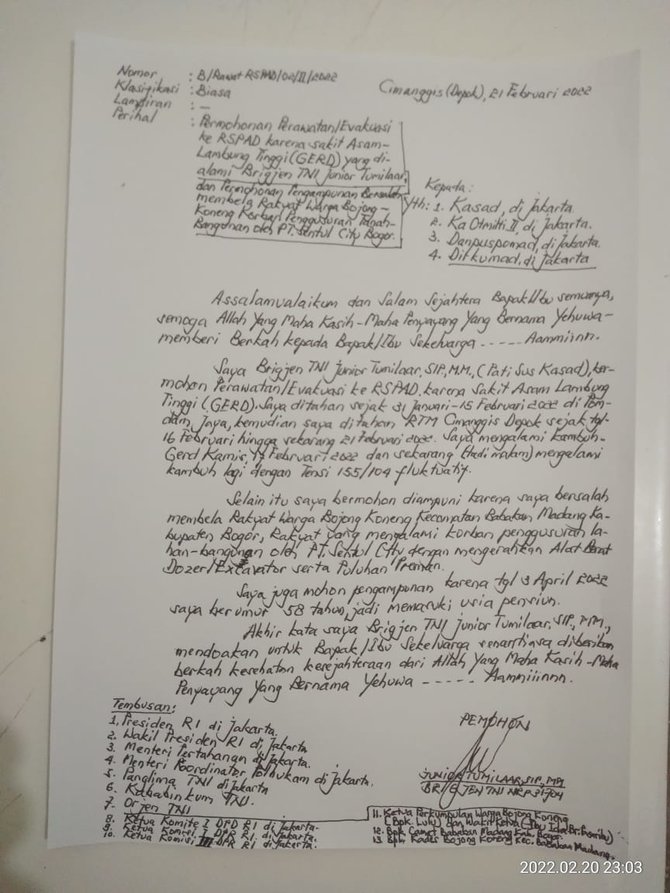 Nomor : B/Rawat RSPAD/02/II/2022
Klasifikasi : Biasa
Lampiran : -
Perihal : Permohonan Perawatan/Evakuasi
ke RSPAD karena sakit Asam-
Lambung Tinggi (GERD) yang di-
alami Brigjen TNI Junior Tumilaar,
dan Permohonan Pengampunan Bersalah
membela Rakyat Warga Bojong-
Koneng Korban Penggusuran Tanah-
Bangunan oleh PT. Sentul City Bogor.
Cimanggis (Depok), 21 Februari 2022
Kepada:
Yth: 1. Kasad, di Jakarta.
2. Ka Otmilti II, di Jakarta.
3. Danpuspomad, di Jakarta.
4. Dirkumad, di Jakarta
Assalamualaikum dan Salam Sejahtera Bapak/Ibu semuanya,
semoga Allah Yang Maha Kasih-Maha Penyayang Yang Bernama Yehuwa-
memberi Berkah kepada Bapak/Ibu Sekeluarga ----- Aamiinnn.
Saya Brigjen TNI Junior Tumilaar, SIP, MM, (Pati Sus Kasad), ber-
mohon Perawatan/Evakuasi ke RSPAD, karena Sakit Asam Lambung
Tinggi (GERD). Saya ditahan sejak 31 Januari-15 Februari 2022 di Pom-
dam Jaya, kemudian saya ditahan RTM Cimanggis Depok sejak tgl-
16 Februari hingga sekarang 21 Februari 2022. Saya mengalami kambuh-
Gerd Kamis, Februari 2022 dan sekarang (tadi malam) mengalami
kambuh lagi dengan Tensi 155/104 fluktuatif.
Selain itu saya bermohon diampuni karena saya bersalah
membela Rakyat Warga Bojong Koneng Kecamatan Babakan Madang Ka-
bupaten Bogor, Rakyat yang mengalami korban penggusuran la-
han-bangunan oleh PT. Sentul City dengan mengerahkan Alat Berat
Dozer/Excavator serta Puluhan Preman.
Saya juga mohon pengampunan karena tgl 3 April 2022
saya berumur 58 tahun, jadi memasuki usia pensiun.
Akhir kata saya Brigjen TNI Junior Tumilaar, SIP, MM,
mendoakan untuk Bapak/Ibu Sekeluarga senantiasa diberikan
berkah kesehatan kesejahteraan dari Allah Yang Maha Kasih-Maha
Penyayang Yang Bernama Yehuwa ----- Aammiinnn.
Tembusan:
1. Presiden RI di Jakarta.
2. Wakil Presiden RI di Jakarta
3. Menteri Pertahanan di Jakarta.
4. Menteri Koordinator Polhukam di Jakarta.
5. Panglima TNI di Jakarta
6. Kababinkum TNI.
7. Orjen TNI
8. Ketua Komite I DPD RI di Jakarta.
9. Ketua Komisi I DPR RI di Jakarta.
10. Ketua Komisi III DPR RI di Jakarta.
PEMOHON
JUNIOR TUMILAAR, SIP, MM
BRIGJEN TNI NRP 31704
11. Ketua Perkumpulan Warga Bojong Koneng
(Bpk. Lulu) dan Wakil Ketua (Ibu Ida
12. Bpk Camat Babakan Madang Kab. Bogor.
13. Bpk Kades Bojong Koneng Kec. Babakan Madang.
2022.02.20 23:03